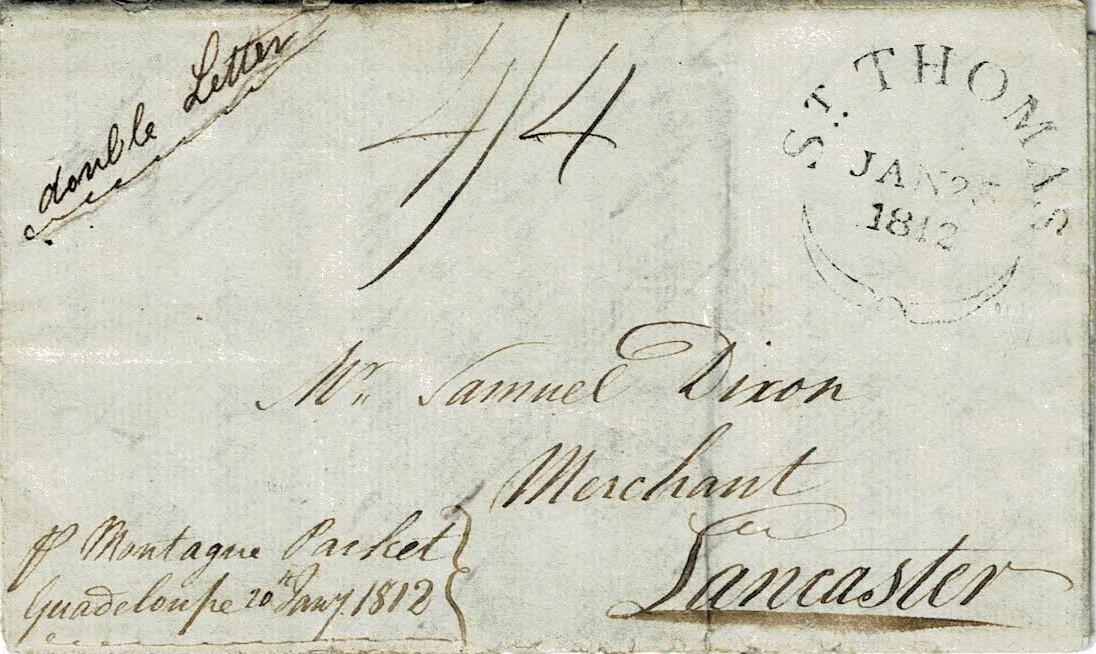 double Letter
4/4
ST. THOMAS
JAN 25
1812
Mr Samuel Dixon
Merchant
Lancaster
P Montague Packet
Guadeloupe 20th Jany. 1812